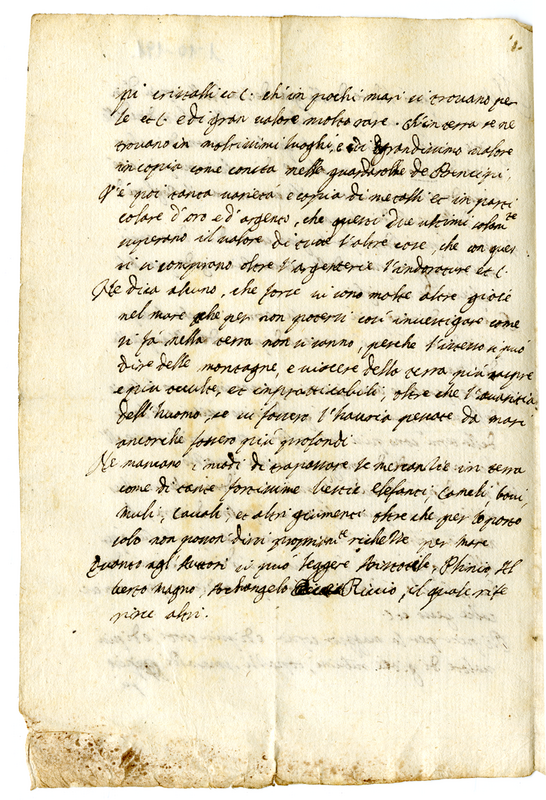 pi cristalli et c. ch'in pochi mari si trovano per
le et c. e di gran valore molto rare. Ch'in terra se ne
trovano in moltissimi luoghi, e di grandissimo valore
in copia come consta nelle guardarobbe de Principi.
V'è poi tanta varietà e copia di metalli et in parti
colare d'oro e d'argento, che questi due ultimi solam.te
superano il valore di tutte l'altre cose, che con ques
ti si comprano oltre l'argenterie l'indorature et c.
Ne dica alcuno, che forse vi sono molte altre gioie
nel mare che per non potersi così investigare come
si fà nella terra non si sanno, perche l'istesso si può
dire delle montagne, e viscere della terra più aspre
e più occulte, et impratticabili, oltre che l'avaritia
dell'huomo se vi fossero l'havria pescate da mari
ancorche fossero più profondi.
Ne mancano i modi di trapassare le mercantie in terra
come di tante fortissime bestie elefanti, Cameli, bovi,
muli, Cavalli, et altri giumenti oltre che per le porto
solo non posson dirsi propriam.te richezze per mare
Quanto agli Autori si può leggere Aristotele, Plinio, Al
berto magno, Archangelo Riccio, il quale rife
risce altri.